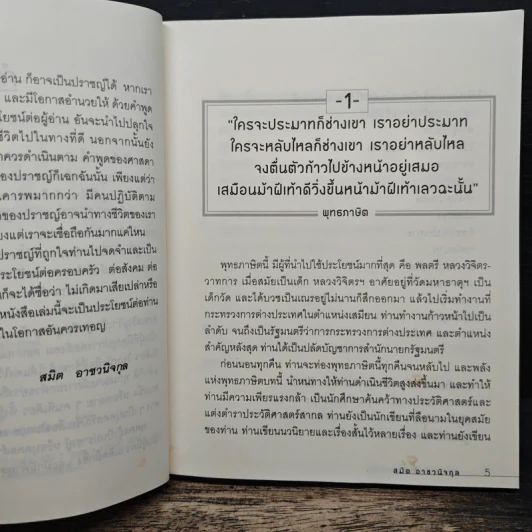 อ่าน ก็อาจเป็นปราชญ์ได้ หากเรา
และมีโอกาสอำนวยให้ ด้วยคำพูด
โยชน์ต่อผู้อ่าน อันจะนำไปปลุกใจ
ชีวิตไปในทางที่ดี นอกจากนั้นยัง
าควรดำเนินตาม คำพูดของศาสดา
องปราชญ์ก็เฉกฉันนั้น เพียงแต่ว่า
คารพมากกว่า มีคนปฏิบัติตาม
ของปราชญ์อาจนำทางชีวิตของเรา
ยงแต่เราจะเชื่อถือกันมากแค่ไหน
ปราชญ์ที่ถูกใจท่านไปจดจำและเป็น
ระโยชน์ต่อครอบครัว ต่อสังคม ต่อ
ก็จะได้ชื่อว่า ไม่เกิดมาเสียเปล่าหรือ
หนังสือเล่มนี้จะเป็นประโยชน์ต่อท่าน
ในโอกาสอันควรเทอญ
สมิต อาชวนิจกุล
-1-
"ใครจะประมาทก็ช่างเขา เราอย่าประมาท
ใครจะหลับใหลก็ช่างเขา เราอย่าหลับใหล
จงตื่นตัวก้าวไปข้างหน้าอยู่เสมอ
เสมือนม้าฝีเท้าดีวิ่งขึ้นหน้าม้าฝีเท้าเลวฉะนั้น"
พุทธภาษิต
พุทธภาษิตนี้ มีผู้ที่นำไปใช้ประโยชน์มากที่สุด คือ พลตรี หลวงวิจิตร-
วาทการ เมื่อสมัยเป็นเด็ก หลวงวิจิตรฯ อาศัยอยู่ที่วัดมหาธาตุฯ เป็น
เด็กวัด และได้บวชเป็นเณรอยู่ไม่นานก็สึกออกมา แล้วไปเริ่มทำงานที่
กระทรวงการต่างประเทศในตำแหน่งเสมียน ท่านทำงานก้าวหน้าไปเป็น
ลำดับ จนถึงเป็นรัฐมนตรีว่าการกระทรวงการต่างประเทศ และตำแหน่ง
สำคัญหลังสุด ท่านได้เป็นปลัดบัญชาการสำนักนายกรัฐมนตรี
ก่อนนอนทุกคืน ท่านจะท่องพุทธภาษิตนี้ทุกคืนจนหลับไป และพลัง
แห่งพุทธภาษิตบทนี้ นำหนทางให้ท่านดำเนินชีวิตสูงส่งขึ้นมา และทำให้
ท่านมีความเพียรแรงกล้า เป็นนักศึกษาค้นคว้าทางประวัติศาสตร์และ
แต่งตำราประวัติศาสตร์สากล ท่านยังเป็นนักเขียนที่ลือนามในยุคสมัย
ของท่าน ท่านเขียนนวนิยายและเรื่องสั้นไว้หลายเรื่อง และท่านยังเขียน
สมิต อาชวนิจกุล 5